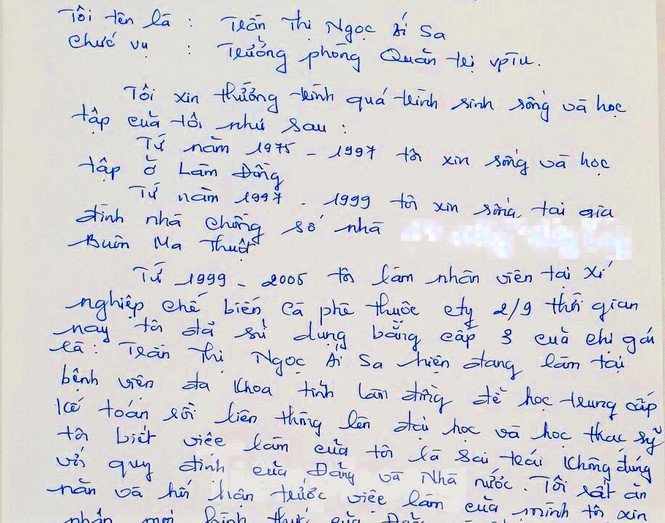 Tôi tên là : Trần Thị Ngọc Ái Sa
Chức vụ : Trưởng phòng Quản trị VPTU.
Tôi xin tường trình quá trình sinh sống và học
tập của tôi như sau :
Từ năm 1975 - 1997 tôi xin sống và học
tập ở Lâm Đồng
Từ năm 1997 - 1999 tôi xin sống tại gia
đình nhà chồng số nhà
Buôn Ma Thuột
Từ 1999 - 2005 tôi làm nhân viên tại xí
nghiệp chế biến cà phê thuộc cty 2/9 thời gian
này tôi đã sử dụng bằng cấp 3 của chị gái
là : Trần Thị Ngọc Ái Sa hiện đang làm tại
bệnh viện đa khoa tỉnh Lâm đồng để học trung cấp
kế toán rồi liên thông lên đại học và học thạc sỹ
tôi biết việc làm của tôi là sai trái không đúng
với quy định của Đảng và Nhà nước. Tôi rất ăn
năn và hối hận trước việc làm của mình tôi xin
nhận mọi hình thức của Đảng